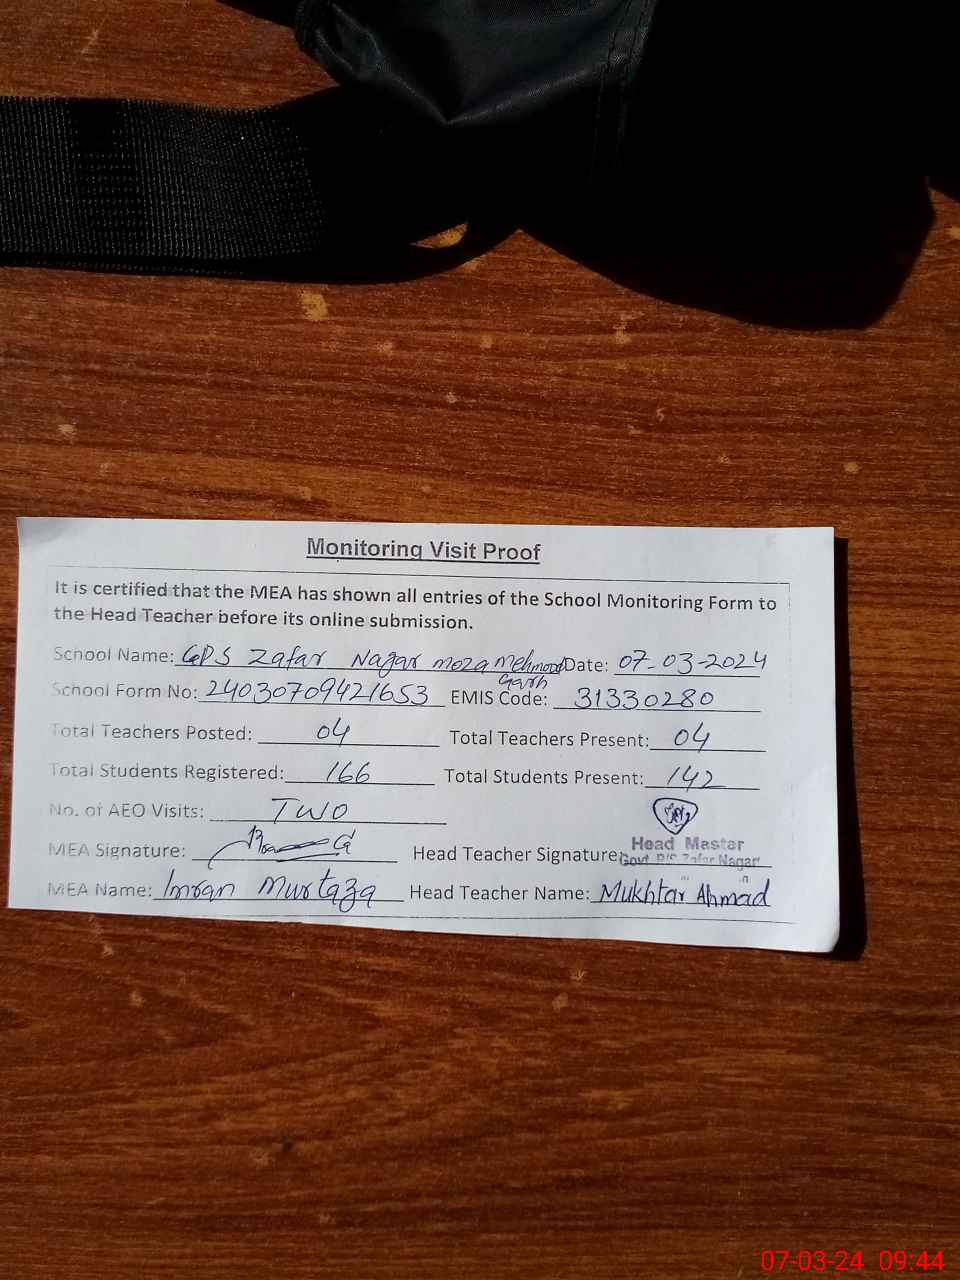 Monitoring Visit Proof
It is certified that the MEA has shown all entries of the School Monitoring Form to
the Head Teacher before its online submission.
School Name: GPS Zafar Nagar moza Mehmood Garh Date: 07-03-2024
School Form No: 24030709421653 EMIS Code: 31330280
Total Teachers Posted: 04 Total Teachers Present: 04
Total Students Registered: 166 Total Students Present: 142
No. of AEO Visits: TWO
MEA Signature: Head Teacher Signature:
Head Master
Govt. P/S Zafar Nagar
MEA Name: Imran Murtaza Head Teacher Name: Mukhtar Ahmad
07-03-24 09:44